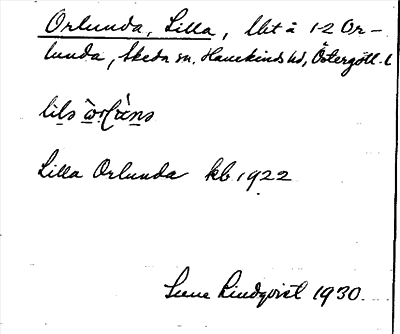 Orlunda, Lilla, lht å 1-2 Or-
lunda, Skeda sn. Hanekinds hd, Östergötl. l
lils
Lilla Orlunda kb 1922
Lindqvist 1930.